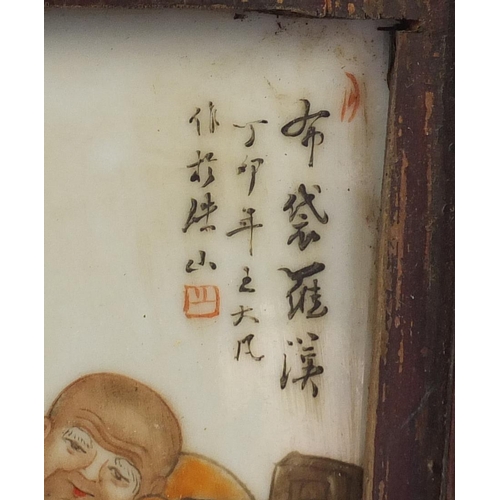 布袋羅漢
丁卯年王大凡
作於珠山